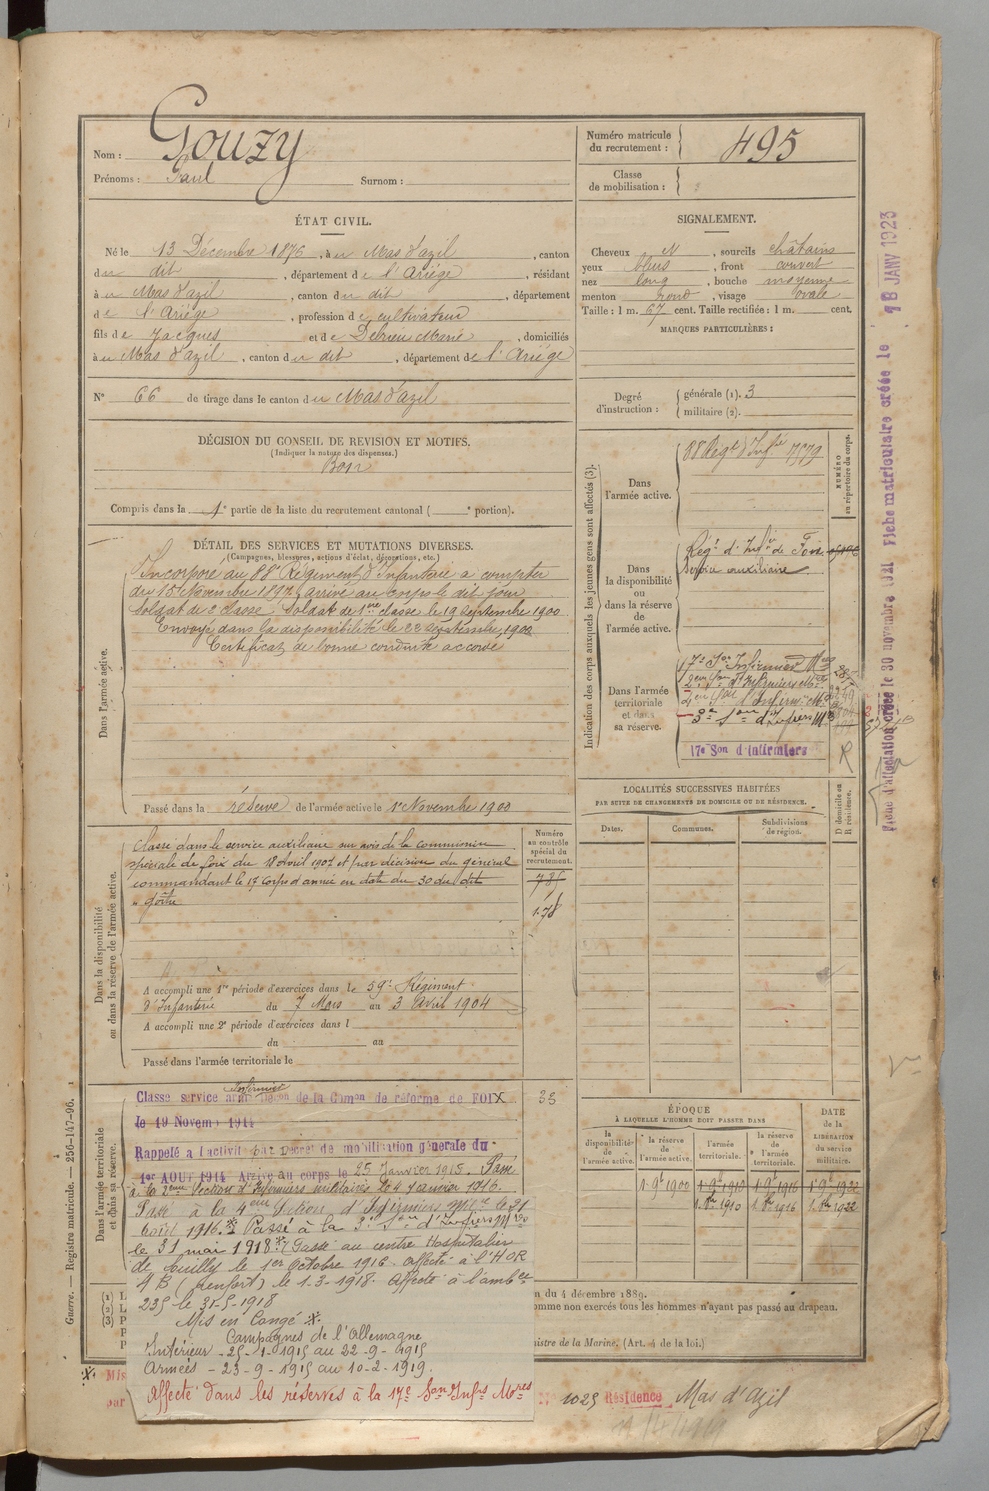 Nom : Gouzy
Prénoms : Paul Surnom :
Numéro matricule du recrutement : 495
Classe de mobilisation :
ÉTAT CIVIL.
Né le 13 Décembre 1876, à u Mas d'azil, canton
du dit, département de l'Ariége, résidant
à u Mas d'azil, canton du dit, département
de l'Ariége, profession de cultivateur
fils de Jacques et de Debrieu Marie, domiciliés
à u Mas d'azil, canton du dit, département de l'Ariége
N° 66 de tirage dans le canton du Mas d'azil
SIGNALEMENT.
Cheveux N, sourcils châtains
yeux bleus, front couvert
nez long, bouche moyenne
menton rond, visage ovale
Taille : 1 m. 67 cent. Taille rectifiée : 1 m. cent.
MARQUES PARTICULIÈRES :
Degré d'instruction : générale (1). 3
militaire (2).
DÉCISION DU CONSEIL DE REVISION ET MOTIFS.
(Indiquer la nature des dispenses.)
Bon
Compris dans la 1e partie de la liste du recrutement cantonal ( e portion).
DÉTAIL DES SERVICES ET MUTATIONS DIVERSES.
(Campagnes, blessures, actions d'éclat, décorations, etc.)
Dans l'armée active.
Incorporé au 88e Régiment d'Infanterie a compter
du 15 Novembre 1897, arrivé au corps le dit jour
Soldat de 2e classe. Soldat de 1ere classe le 19 Septembre 1900
Envoyé dans la disponibilité le 22 Septembre 1900
Certificat de bonne conduite accordé
Passé dans la réserve de l'armée active le 1er Novembre 1900
Indication des corps auxquels les jeunes gens sont affectés (3).
NUMÉRO au répertoire du corps.
Dans l'armée active. 88 Régt d'Infie 7579
Dans la disponibilité ou dans la réserve de l'armée active.
Régt d'Infie de Foix
Service auxiliaire
Dans l'armée territoriale et dans sa réserve.
17e Son Infirmiers Mres
2eme Son d'Infirmiers Mres
4eme Son d'Infirm. Mres
3e Son d'Infers Mres
17e Son d'infirmiers
R
LOCALITÉS SUCCESSIVES HABITÉES
PAR SUITE DE CHANGEMENTS DE DOMICILE OU DE RÉSIDENCE.
Dates. Communes. Subdivisions de région. D domicile ou R résidence.
Dans la disponibilité ou dans la réserve de l'armée active.
Numéro au contrôle spécial du recrutement.
Classé dans le service auxiliaire sur avis de la commission
spéciale de Foix du 18 avril 1907 et par décision du général
commandant le 17 corps d'armée en date du 30 du dit
" goître
178
A accompli une 1re période d'exercices dans le 59e Régiment
d'Infanterie du 7 Mars au 3 Avril 1904
A accompli une 2e période d'exercices dans l
du au
Passé dans l'armée territoriale le
Dans l'armée territoriale et dans sa réserve.
33
Infirmier
Classe service armé Décon de la Comon de réforme de FOIX
le 19 Novem 1914
Rappelé a l'activité par Décret de mobilisation générale du
1er AOUT 1914 Arrivé au corps le 25 Janvier 1915. Passé
à la 2eme Section d'Infirmiers militaires le 4 Janvier 1916.
Passé à la 4eme Section d'Infirmiers Milres le 21
Août 1916. Passé à la 3e Son d'Infers Mres
le 31 mai 1918. Passé au centre Hospitalier
de Cuilly le 1er Octobre 1916. affecté à l'HOR
4 B (renfort) le 1-3-1918. affecté à l'ambce
235 le 31-5-1918
Mis en Congé
Campagnes de l'Allemagne
Intérieur - 25-1-1915 au 22-9-1915
Armées - 23-9-1915 au 10-2-1919.
Affecté dans les réserves à la 17e Son Infrs Mres
ÉPOQUE
À LAQUELLE L'HOMME DOIT PASSER DANS
la disponibilité de l'armée active. la réserve de l'armée active. l'armée territoriale. la réserve de l'armée territoriale.
DATE de la LIBÉRATION du service militaire.
1-9e 1900 1-9e 1910 1-9e 1916 1-9e 1922
1.8re 1910 1.8re 1916 1.8re 1922
(1) L
(2) L
(3) P
n du 4 décembre 1889.
omme non exercés tous les hommes n'ayant pas passé au drapeau.
nistre de la Marine. (Art. 4 de la loi.)
Mis
par
1025 Résidence Mas d'Azil
Guerre. — Registre matricule. — 256-147-96.
Fiche d'affectation créée le 30 novembre 1921 Fiche matriculaire créée le 18 JANV 1923